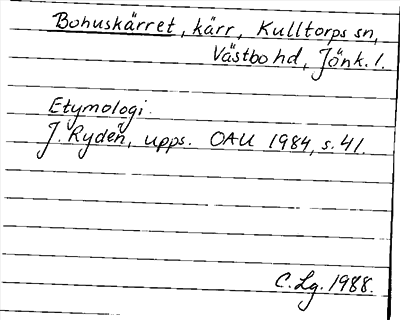 Bohuskärret, kärr, Kulltorps sn,
Västbo hd, Jönk. l.
Etymologi.
J. Rydén, upps. OAU 1984, s. 41.
C. Lg. 1988.